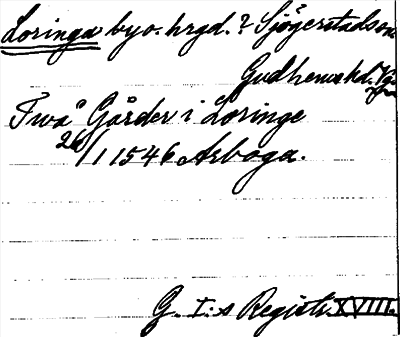 Loringa by o. hrgd.? Sjögerstads sn
Gudhems hd.
Två Gårder i Loringe
26/1 1546 Arboga.
G. I:s Registr. XVIII.